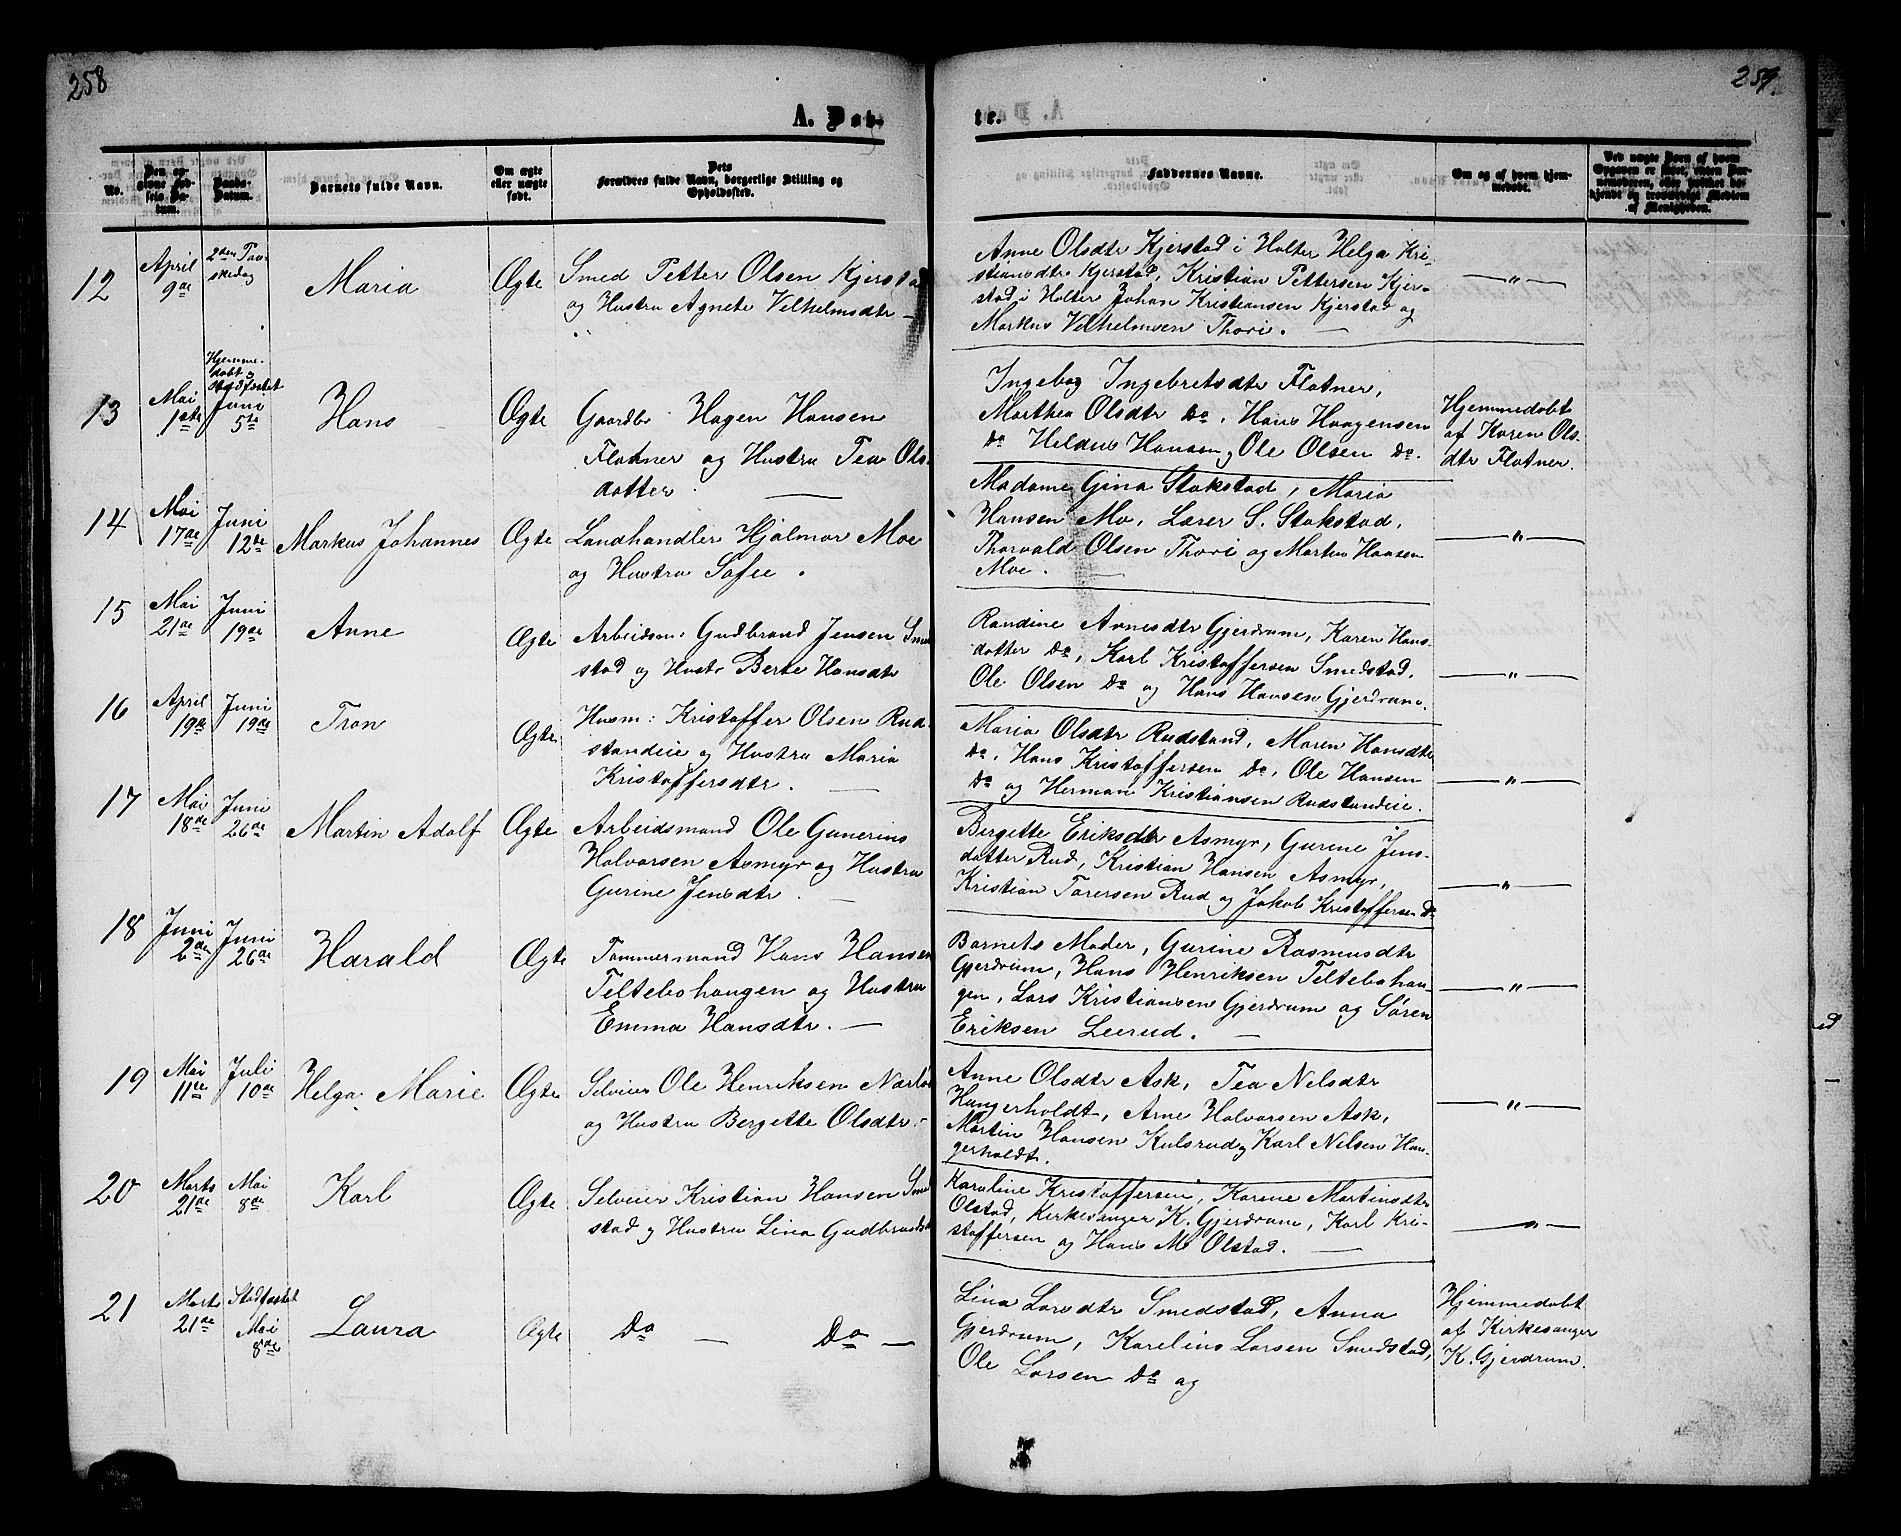 258
259.
A. Døb-
te.
No.
Den opgivne Fødsels Datum.
Daabs-Datum.
Barnets fulde Navn.
Om ægte eller uægte født.
Dets Forældres fulde Navn, borgerlige Stilling og Opholdssted.
Faddernes Navne.
Om og af hvem hjemmedøbt.
12
April 9de
2den Paaskedag
Maria
Ægte
Smed Petter Olsen Kjerstad
og Hustru Agnete Vilhelmsdtr —
Anne Olsdtr Kjerstad i Holter Helga Kri-
stiansdtr Kjerstad, Kristian Pettersen Kjer-
stad i Holter Johan Kristiansen Kjerstad og
Markus Vilhelmsen Thori. —
— " —
13
Mai 1ste
Hjemme-
døbt og
Stadfæstet
Juni 5te
Hans
Ægte
Gaardbr Hagen Hansen
Flatner og Hustru Tea Ols-
datter. —
Ingebog Ingebretsdtr Flatner,
Marthea Olsdtr Do, Hans Haagensen
Do Heldus Hansen og Ole Olsen Do.
Hjemmedøbt
af Karen Ols-
dtr Flatner.
14
Mai 17de
Juni 12te
Markus Johannes
Ægte
Landhandler Hjalmar Moe
og Hustru Sofie.
Madame Gina Stokstad, Maria
Hansen Mo, Lærer S. Stokstad,
Thorvald Olsen Thori og Martin Hansen
Moe. —
— " —
15
Mai 21de
Juni 19de
Anne
Ægte
Arbeidsm: Gudbrand Jensen Smed-
stad og Hustr Berte Hansdtr
Randine Arnesdtr Gjerdrum, Karen Hans-
datter Do, Karl Kristoffersen Smedstad,
Ole Olsen Do og Hans Hansen Gjerdrum.
— " —
16
April 19de
Juni 19de
Tron
Ægte
Husm: Kristoffer Olsen Rud-
standeie og Hustru Maria
Kristoffersdtr. —
Maria Olsdtr Rudstand, Maren Hansdtr
Do, Hans Kristoffersen Do, Ole Hansen
Do og Herman Kristiansen Rudstandeie.
— " —
17
Mai 18de
Juni 26de
Martin Adolf
Ægte
Arbeidsmand Ole Gunerius
Halvorsen Asmyr og Hustru
Gurine Jensdtr. —
Bergette Eriksdtr Asmyr, Gurine Jens-
datter Rud, Kristian Hansen Asmyr,
Kristian Torersen Rud og Jakob Kristoffersen Do
— " —
18
Juni 2de
Juni 26de
Harald
Ægte
Tømmermand Hans Hansen
Teltebohaugen og Hustru
Emma Hansdtr. —
Barnets Moder, Gurine Rasmusdtr
Gjerdrum, Hans Henriksen Teltebohau-
gen, Lars Kristiansen Gjerdrum og Søren
Eriksen Leerud. —
— " —
19
Mai 11te
Juli 10de
Helga Marie
Ægte
Selveier Ole Henriksen
og Hustru Bergette Olsdtr. —
Anne Olsdtr Ask, Tea Nelsdtr
Haugerholdt, Arne Halvorsen Ask,
Martin Hansen Kulsrud og Karl Nilsen Hau-
gerholdt.
— " —
20
Marts 21de
Mai 8de
Karl
Ægte
Selveier Kristian Hansen Smed-
stad og Hustru Lina Gudbrandsd
Karoline Kristoffersen, Karene Martinsdtr
Olstad, Kirkesanger K. Gjerdrum, Karl Kri-
stoffersen og Hans M. Olstad. —
— " —
21
Marts 21de
Stadfæstet
Mai 8de
Laura
Ægte
Do — Do —
Lina Larsdtr Smedstad, Anna
Gjerdrum, Karelius Larsen Smedstad,
Ole Larsen Do og
Hjemmedøbt
af Kirkesanger
K. Gjerdrum.